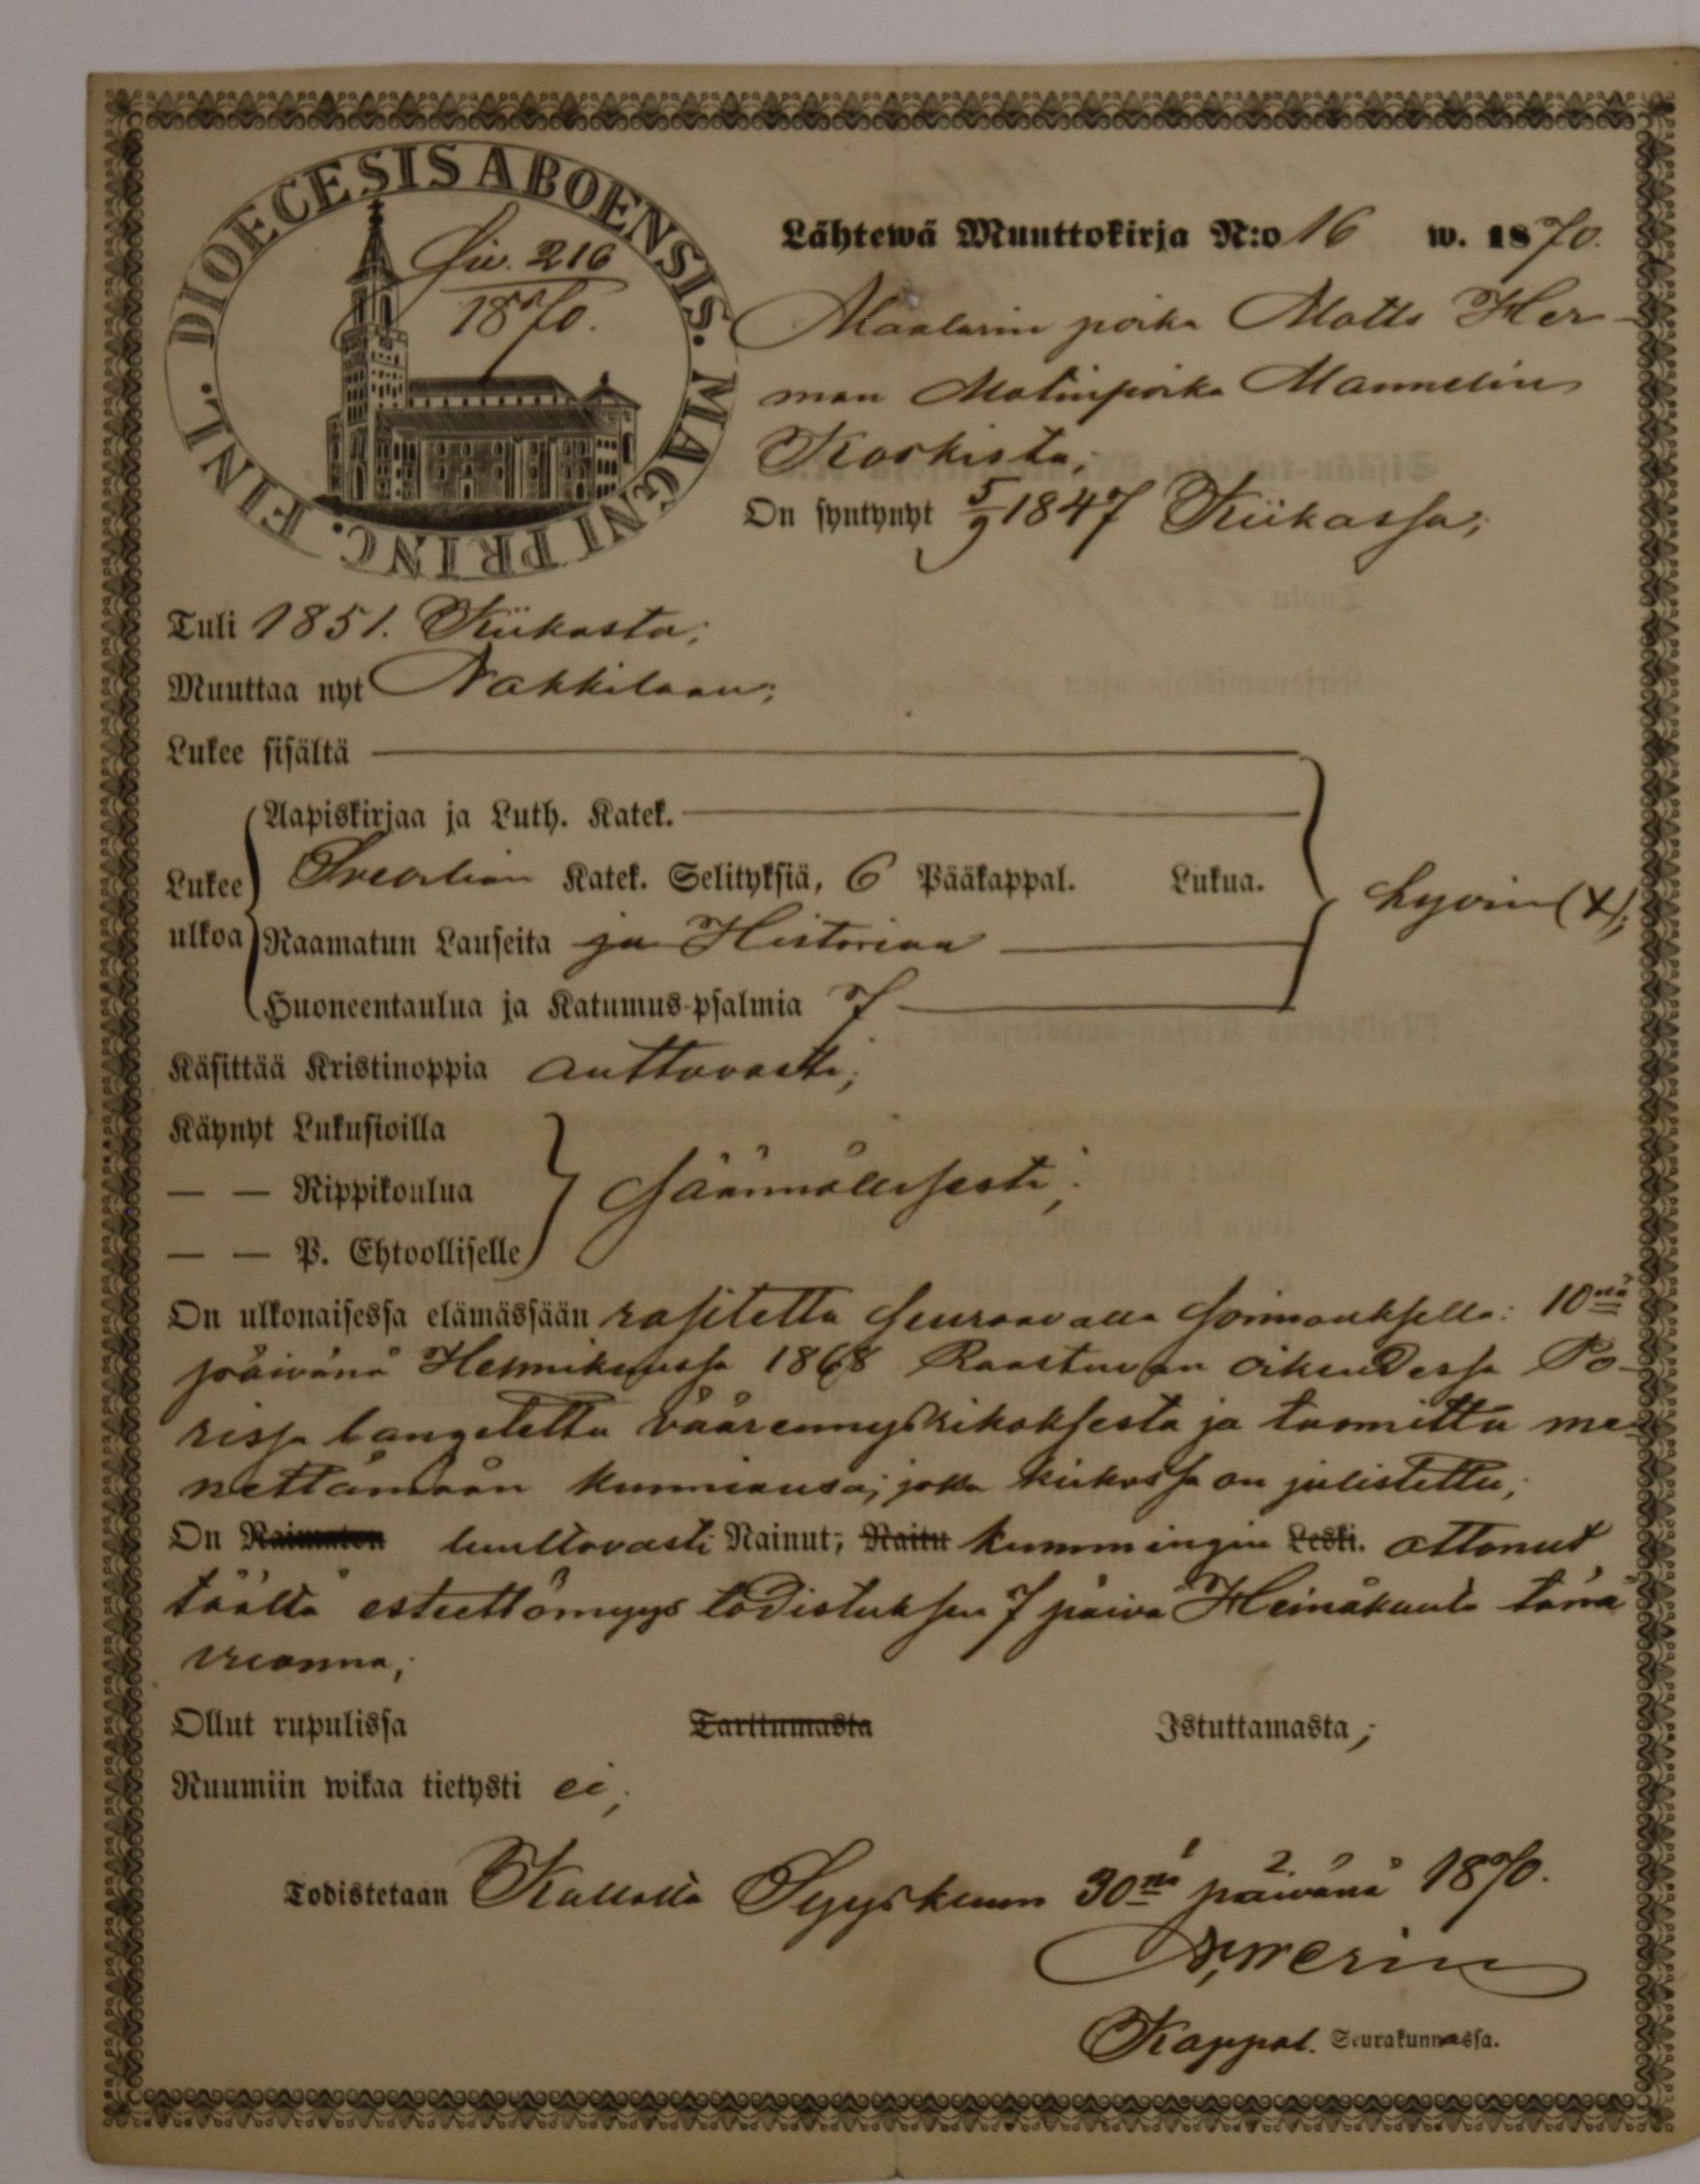 DIOECESIS ABOENSIS. MAGNI PRINC. FINL.
Siv. 216
1870.
Lähtewä Muuttokirja N:o 16 w. 1870.
Maalarin poika Matts Her-
man Matinpoika Mannelin
Koskista;
On syntynyt 5/9 1847 Kiikassa;
Tuli 1851. Kiikasta;
Muuttaa nyt Nakkilaan;
Lukee sisältä
Aapiskirjaa ja Luth. Katek.
Lukee ulkoa
Svebelian Katek. Selityksiä, 6 Pääkappal. Lukua.
hyvin (x);
Raamatun Lauseita ja Historiaa
Huoneentaulua ja Katumus-psalmia 7
Käsittää Kristinoppia auttavasti;
Käynyt Lukusioilla
— — Rippikoulua
säännöllisesti;
— — P. Ehtoolliselle
On ulkonaisessa elämässään rasitettu seuraavalla soimauksella: 10nä
päivänä Helmikuussa 1868 Raastuvan oikeudessa Po-
rissa langetettu väärennysrikoksesta ja tuomittu me-
nettämään kunniansa; joka kirkossa on julistettu;
On Naimaton luultavasti Nainut; Naitu kummingin Leski. ottanut
täältä esteettömyys todistuksen 7 päivä Heinäkuuta tänä
vuonna;
Ollut rupulissa Tarttumasta Istuttamasta;
Ruumiin wikaa tietysti ei;
Todistetaan Syyskuun 30nä päivänä 1870.
Kappal. Seurakunnassa.